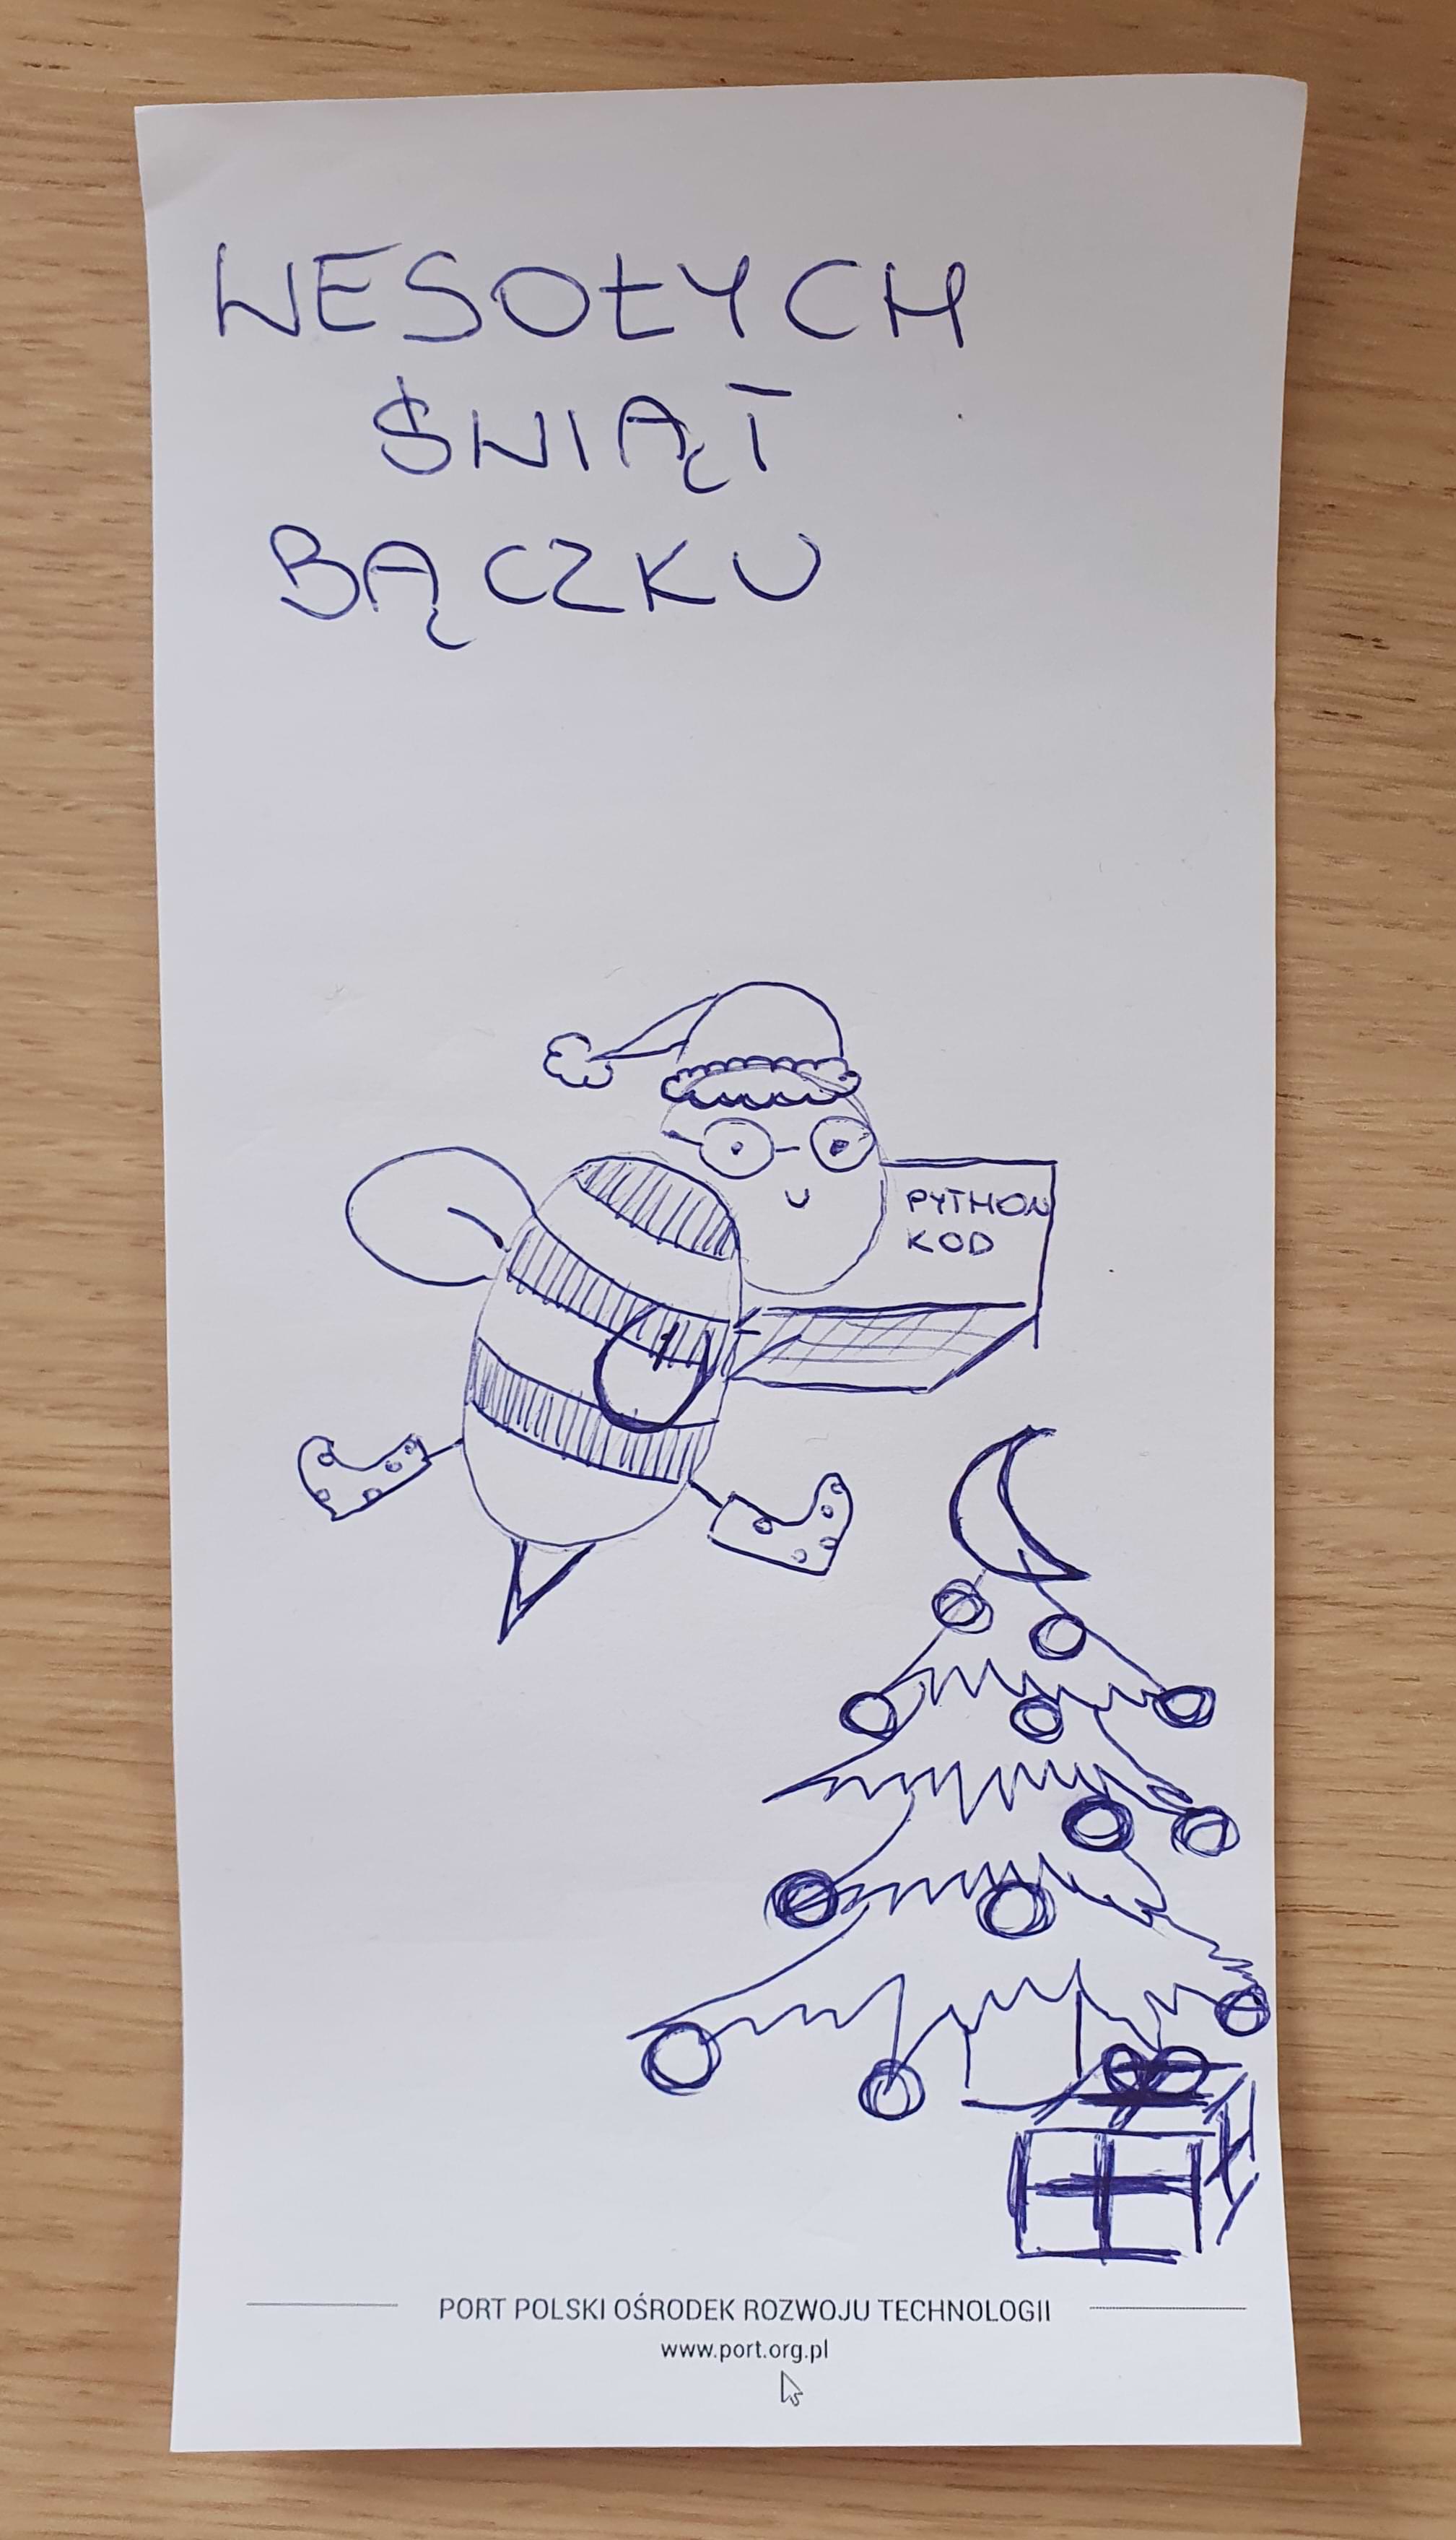 WESOŁYCH
ŚWIĄT
BĄCZKU
PYTHON
KOD
PORT POLSKI OŚRODEK ROZWOJU TECHNOLOGII
www.port.org.pl